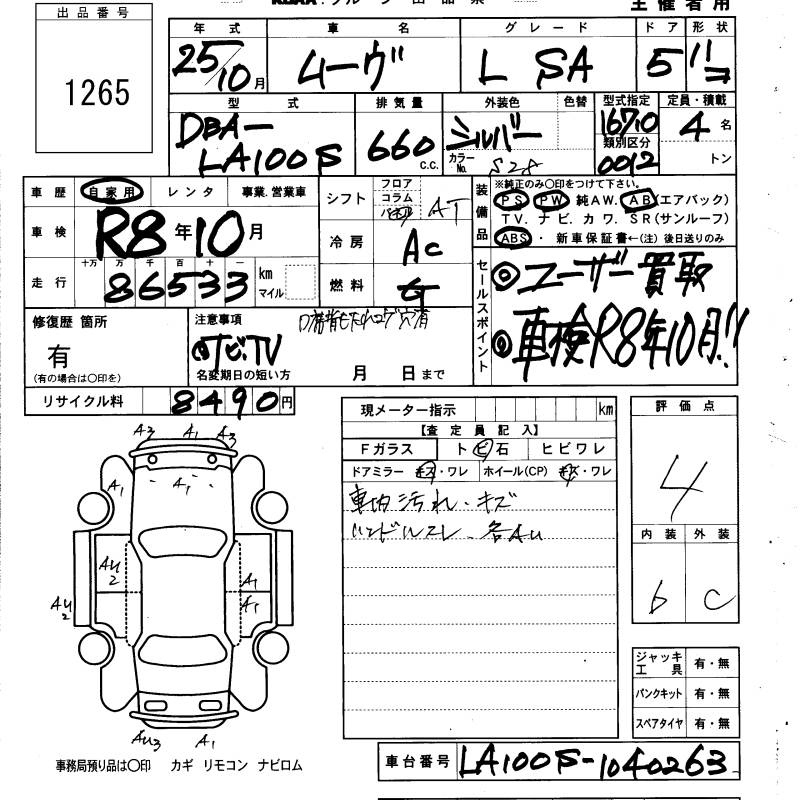 主催者用
出品番号
1265
年式 車名 グレード ドア 形状
25/10月 ムーヴ L SA 5 ハコ
型式 排気量 外装色 色替 型式指定 定員・積載
DBA-LA100S 660 c.c. シルバー 16710 4名
カラーNo. S28 類別区分 0012 トン
車歴 自家用 レンタ 事業.営業車
シフト フロア コラム AT
装備品 ※純正のみ〇印をつけて下さい。
PS PW 純AW. AB(エアバック)
TV. ナビ. カワ. SR(サンルーフ)
ABS・ 新車保証書←(注) 後日送りのみ
車検 R8年10月
冷房 AC
走行 十万 万 千 百 十 一
86533 km マイル
燃料 G
セールスポイント
◎ユーザー買取
◎車検R8年10月!!
修復歴 箇所
有
(有の場合は〇印を)
注意事項
ナビ.TV
名変期日の短い方 月 日まで
リサイクル料 8490円
現メーター指示 km
【査定員記入】
Fガラス トビ石 ヒビワレ
ドアミラー キズ・ワレ ホイール(CP) キズ・ワレ
車内汚れ・キズ
ハンドルスレ. 各AU
評価点
4
内装 外装
b C
A3 A1 A3
A1 A1
AU2 A1
AU2 A1
AU3 A1
ジャッキ工具 有・無
パンクキット 有・無
スペアタイヤ 有・無
事務局預り品は〇印 カギ リモコン ナビロム
車台番号 LA100S-1040263